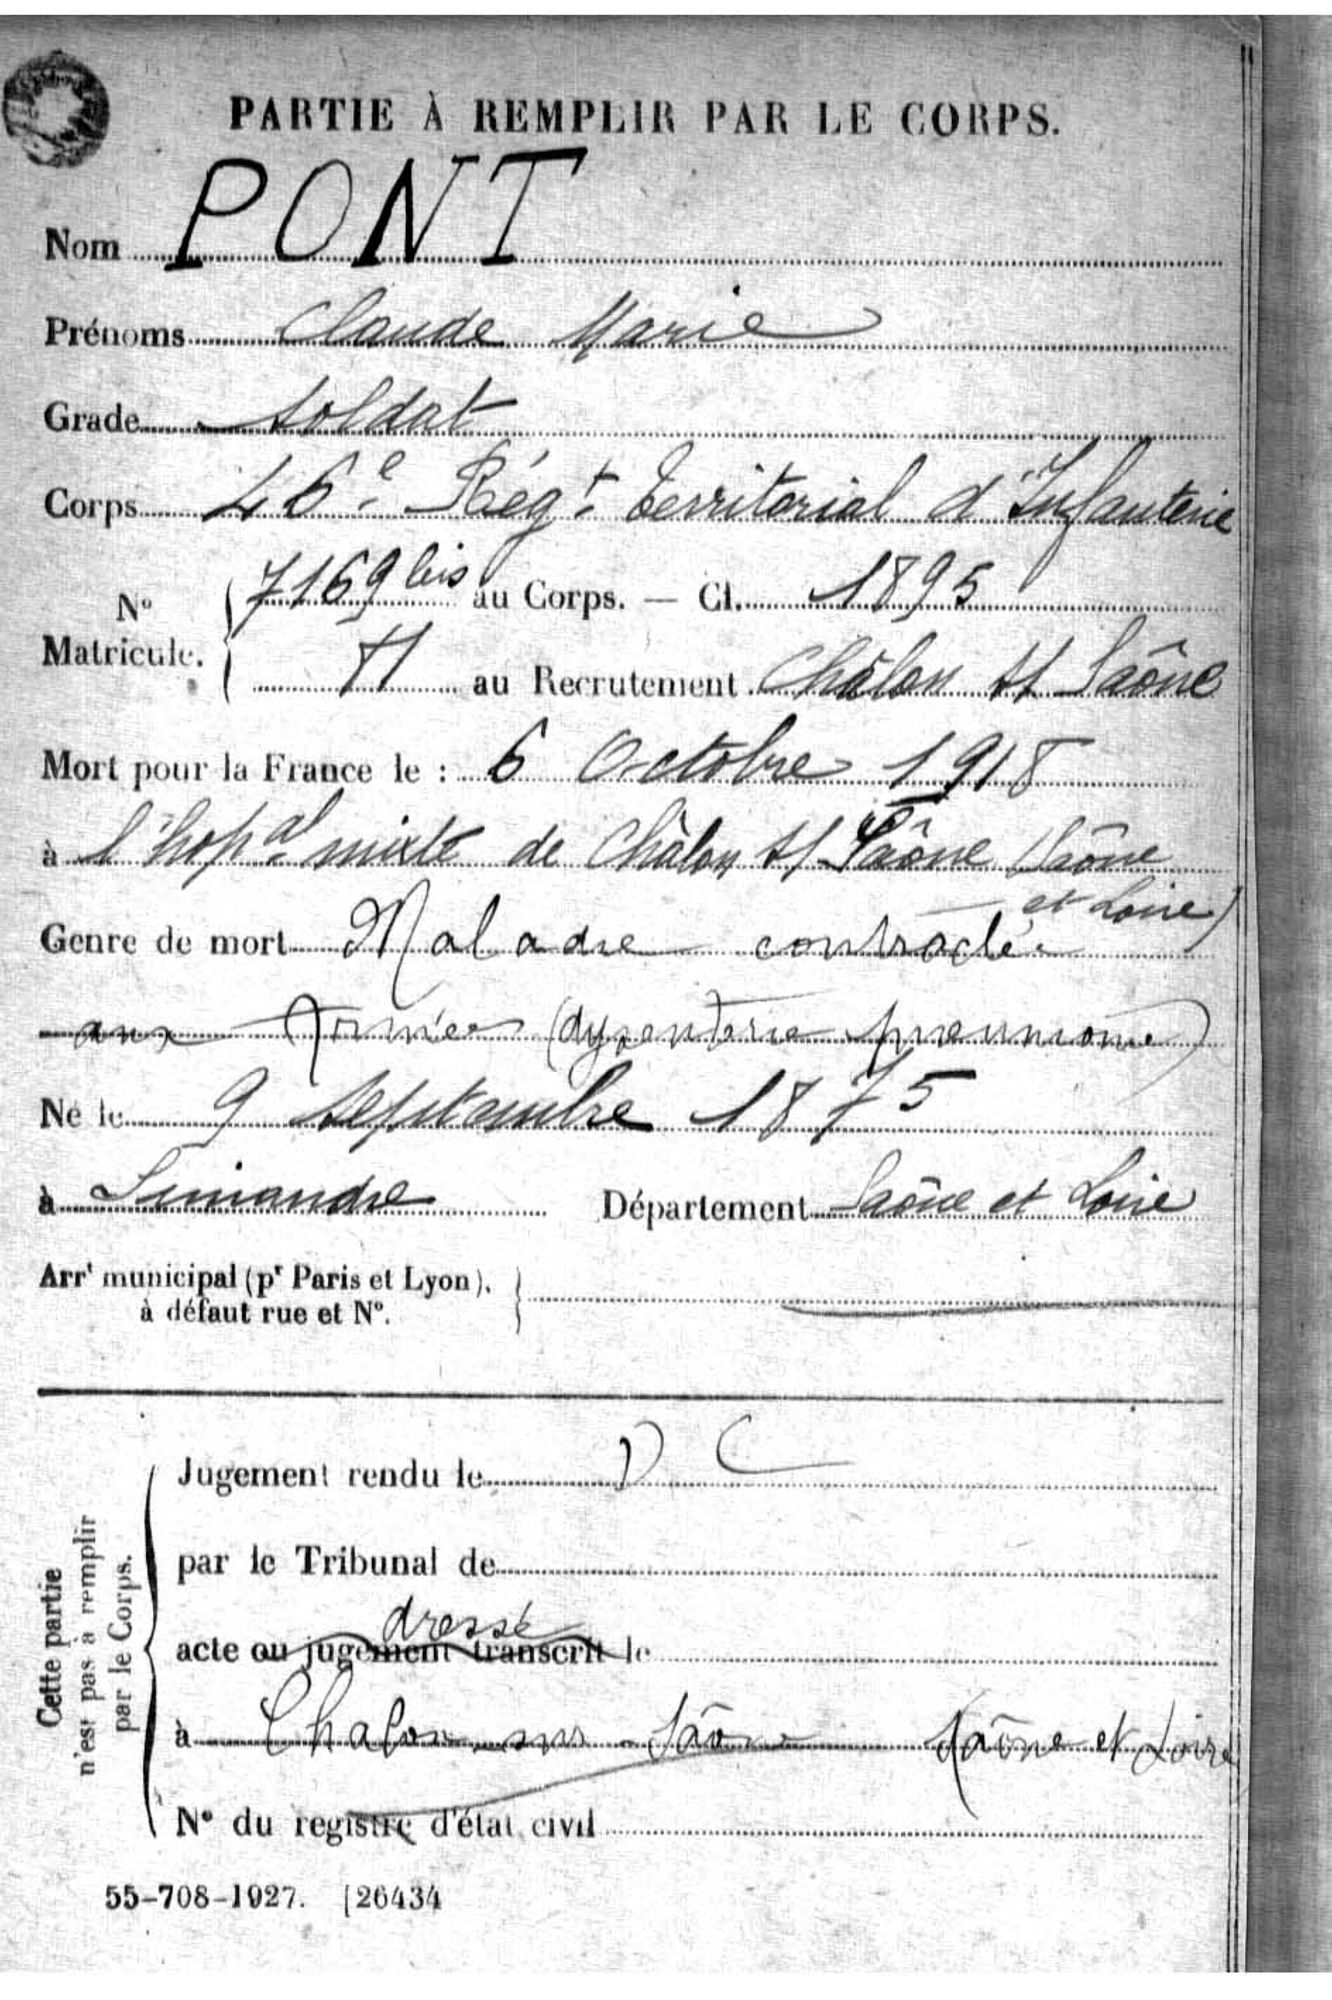 PARTIE À REMPLIR PAR LE CORPS.
Nom PONT
Prénoms Claude Marie
Grade soldat
Corps 46e Régt territorial d'Infanterie
No Matricule. { 7169 bis au Corps. — Cl. 1895
au Recrutement Châlon s/ Saône
Mort pour la France le : 6 Octobre 1918
à l'hopal mixte de Châlon s/ Saône (Saône
et Loire)
Genre de mort Maladie contractée
aux Armées (dysenterie pneumonie)
Né le 9 septembre 1875
à Simandre Département Saône et Loire
Arrt municipal (pr Paris et Lyon),
à défaut rue et No.
Cette partie
n'est pas à remplir
par le Corps.
Jugement rendu le D C
par le Tribunal de
dressé
acte ou jugement transcrit le
à Chalon sur Saône Saône et Loire
No du registre d'état civil
55-708-1927. [26434